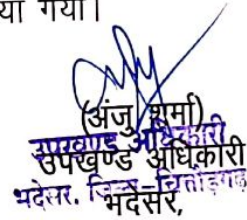 या गया।
(अंजु शर्मा)
उपखण्ड अधिकारी
उपखण्ड अधिकारी
भदेसर, जिला-चित्तौड़गढ़
भदेसर,